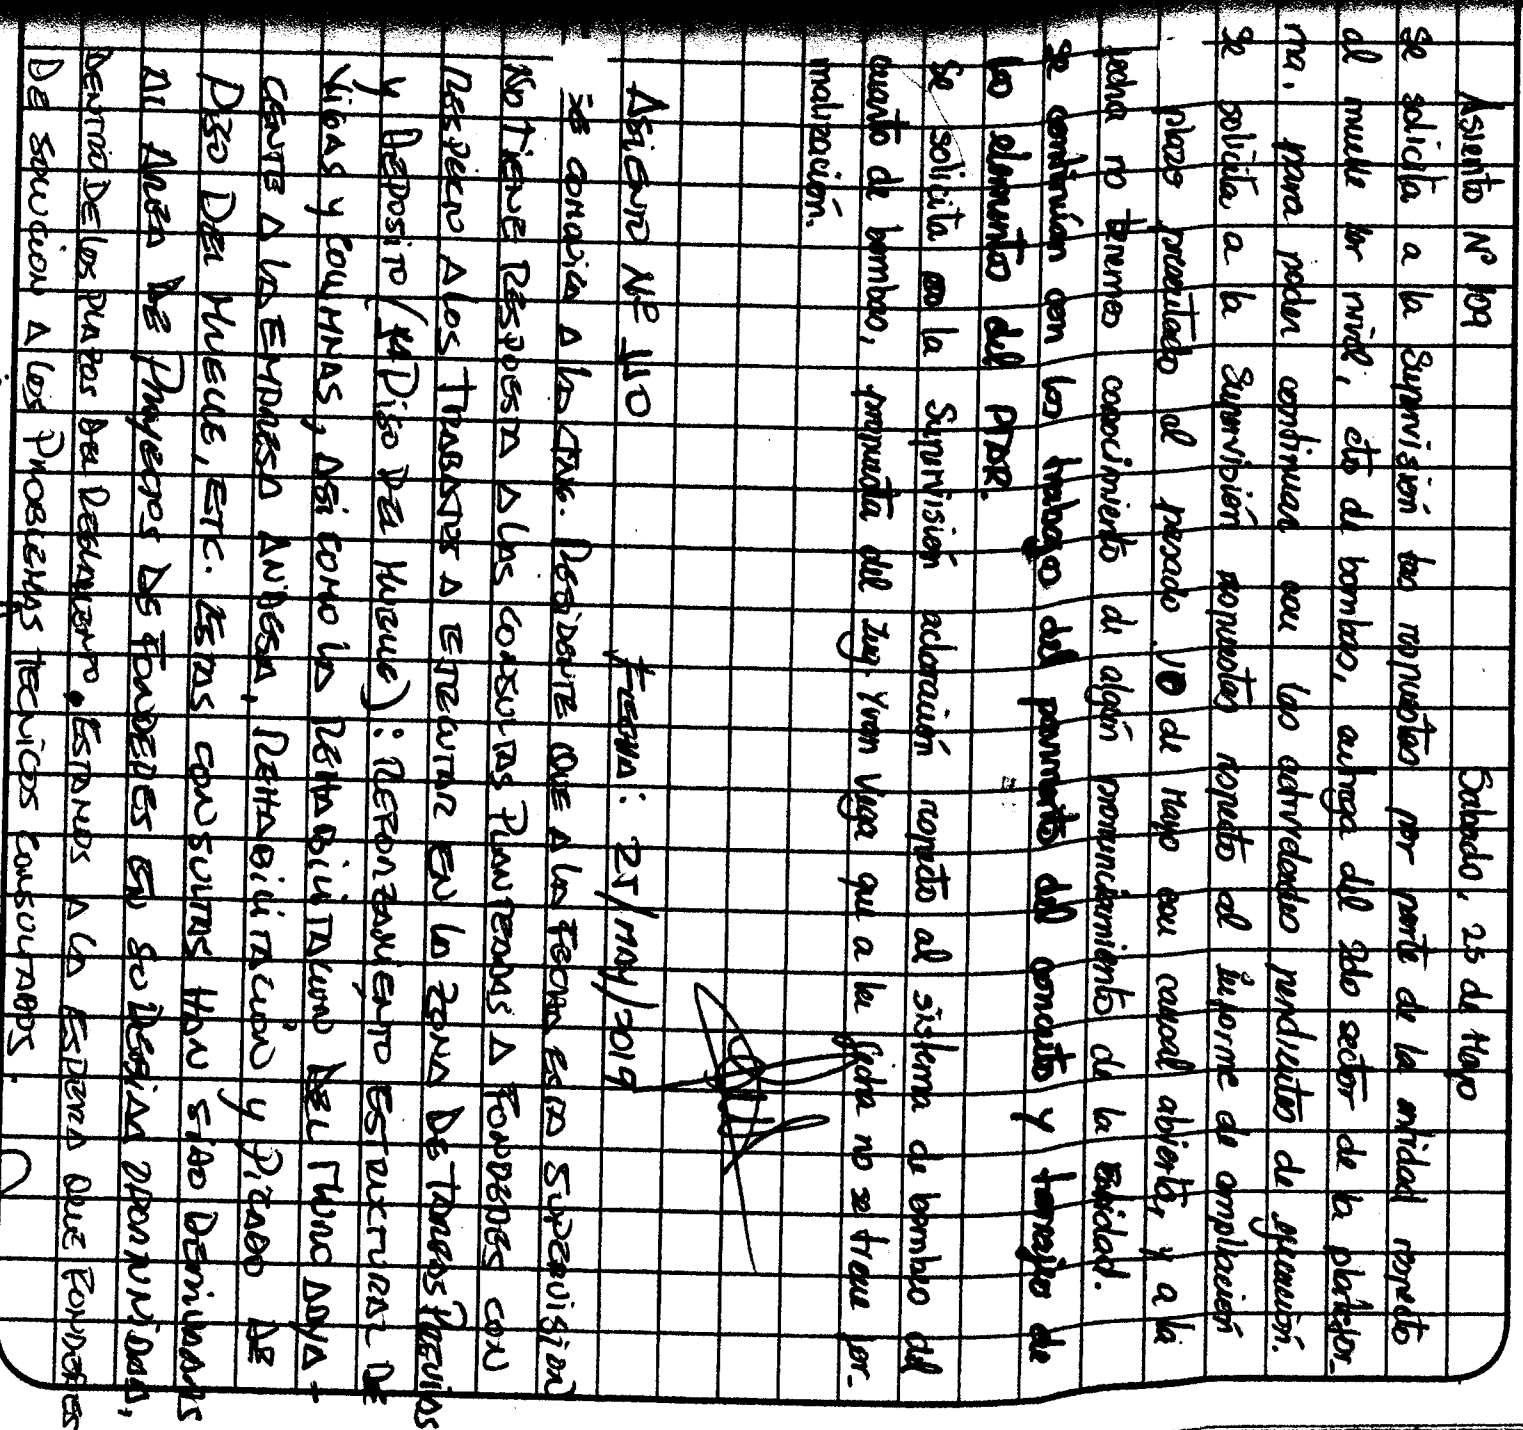 Asiento Nº 109 Sabado, 25 de Mayo
Se solicita a la Supervisión las respuestas por parte de la entidad respecto
al muelle por nivel, cto de bombas, entrega del 2do sector de la platafor-
ma, para poder continuar con las actividades pendientes de ejecución.
Se solicita a la Supervisión respuestas respecto al informe de ampliación
plazo presentado el pasado 10 de Mayo con causal abierta, y a la
fecha no tenemos conocimiento de algún pronunciamiento de la Entidad.
Se continúan con los trabajos del parmento del concreto y tarrajeo de
los elementos del PTAR.
Se solicita a la Supervisión aclaración respecto al sistema de bombeo del
cuarto de bombas, propuesta del Ing. Yvan Vega que a la fecha no se tiene for-
malización.
ASIENTO Nº 110 FECHA: 25/MAY/2019
SE COMUNICA A LA CTAG. RESIDENTE QUE A LA FECHA ESTA SUPERVISION
NO TIENE RESPUESTA A LAS CONSULTAS PLANTEADAS A FONDEPES CON
RESPECTO A LOS TRABAJOS A EJECUTAR EN LA ZONA DE TAREAS PREVIAS
Y DEPOSITO (1ª PISO DEL MUELLE): REFORZAMIENTO ESTRUCTURAL DE
VIGAS Y COLUMNAS, ASI COMO LA REHABILITACION DEL MURO ADYA-
CENTE A LA EMPRESA ANDESA, REHABILITACION Y PICADO DE
PISO DEL MUELLE, ETC. ESTAS CONSULTAS HAN SIDO DERIVADAS
AL AREA DE PROYECTOS DE FONDEPES EN SU DEBIDA OPORTUNIDAD,
DENTRO DE LOS PLAZOS DEL REGLAMENTO, ESTAMOS A LA ESPERA QUE FONDEPES
DE SOLUCION A LOS PROBLEMAS TECNICOS CONSULTADOS.